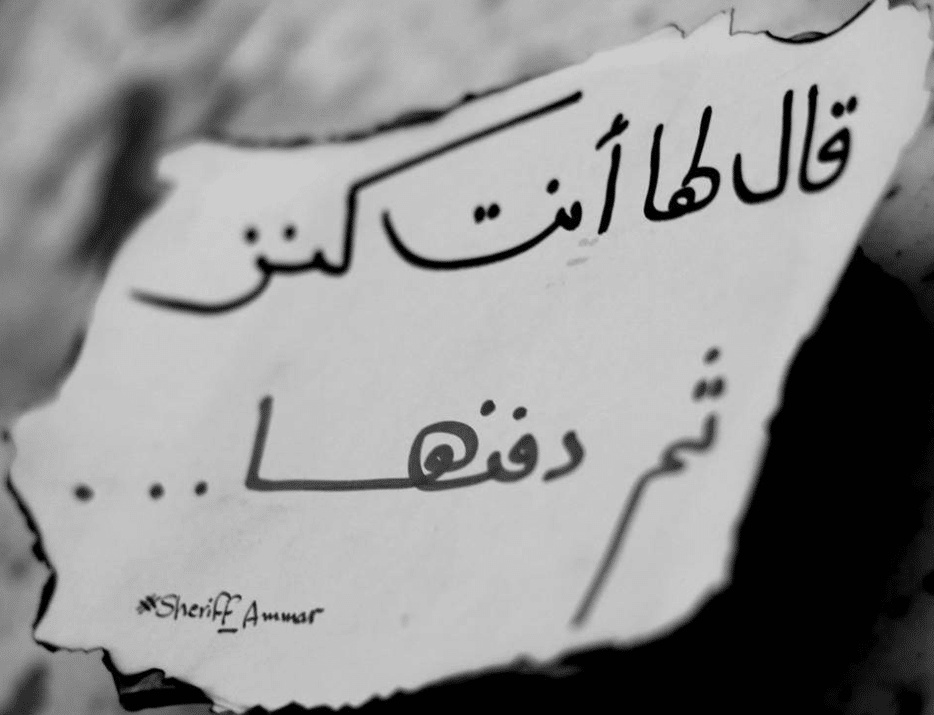 قال لها أنت كنز
ثم دفنها...
#Sheriff_Ammar